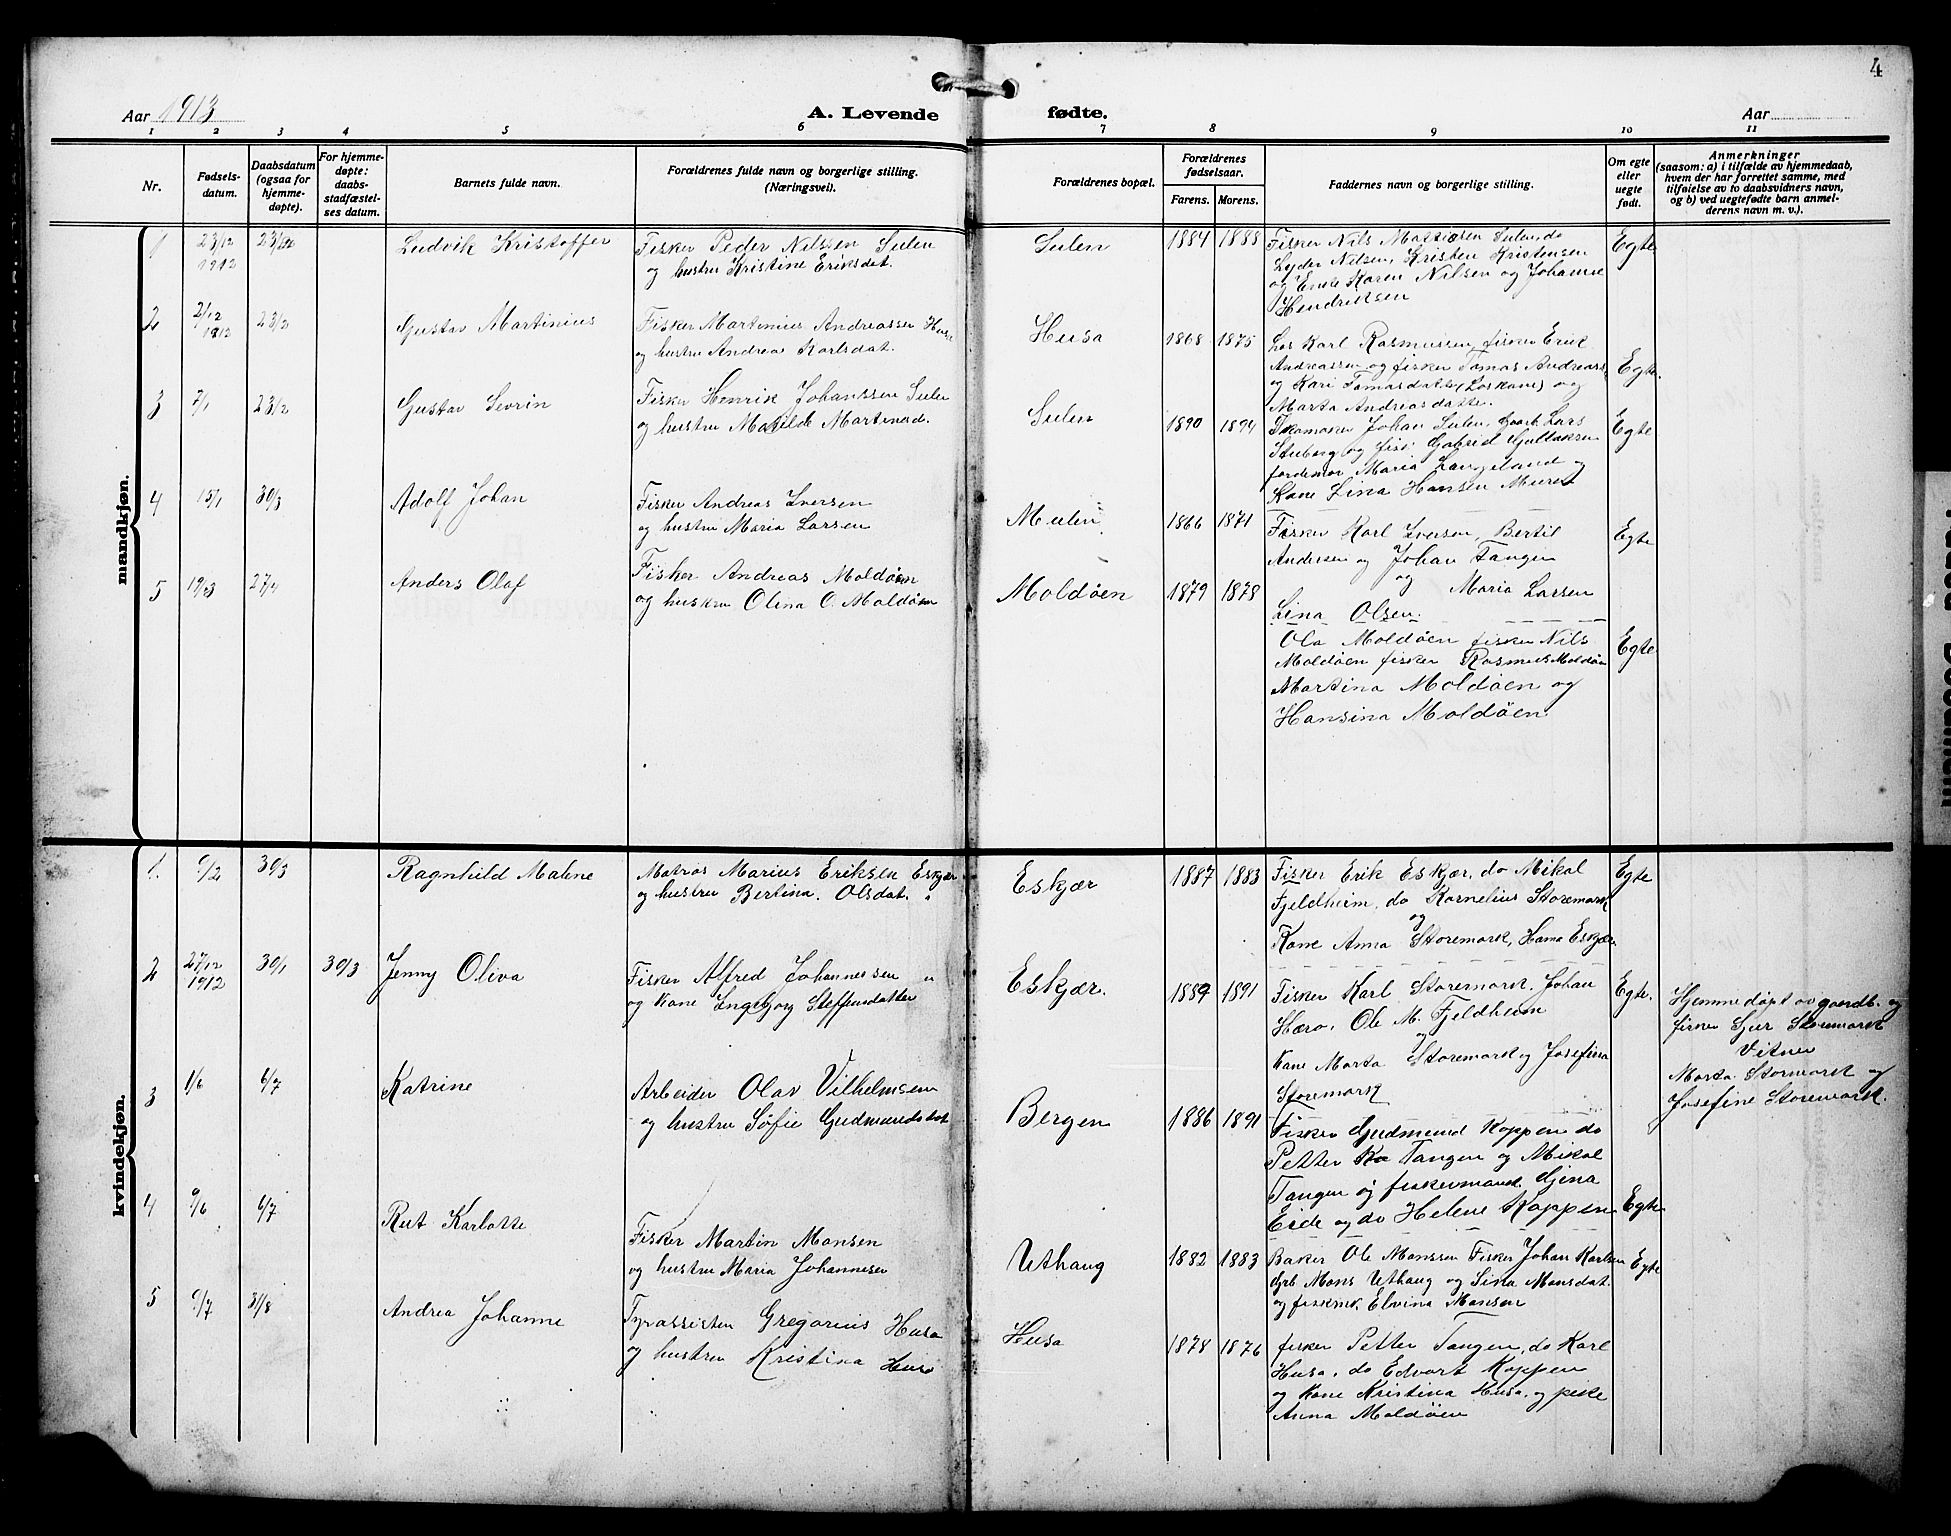 4
Aar 1913
A. Levende fødte.
Aar
1 2 3 4 5 6 7 8 9 10 11
Nr.
Fødsels-
datum.
Daabsdatum
(ogsaa for
hjemme-
døpte).
For hjemme-
døpte:
daabs-
stadfæstel-
ses datum.
Barnets fulde navn.
Forældrenes fulde navn og borgerlige stilling.
(Næringsvei).
Forældrenes bopæl.
Forældrenes
fødselsaar.
Farens. Morens.
Faddernes navn og borgerlige stilling.
Om egte
eller
uegte
født.
Anmerkninger
(saasom: a) i tilfælde av hjemmedaab,
hvem der har forrettet samme, med
tilføielse av to daabsvidners navn,
og b) ved uegtefødte barn anmel-
derens navn m. v.).
mandkjøn.
1 23/12 1912
Ludvik Kristoffer
Fisker Peder Nilsen Sulen
og hustru Kristine Eriksdat.
Sulen 1884 1888
Fisker Nils Mattiesen Sulen, do
Lyder Nilsen, Kristen Kristensen
og Enke Karen Nilsen og Johanne
Hendriksen
Egte
2 2/12 1912 23/2
Gustav Martinius
Fisker Martinius Andreassen Husa
og hustru Andrea Karlsdat.
Husa 1868 1875
Los Karl Rasmussen, fisker Erik
Andreassen og fisker Tomas Andreass
og Kari Tomasdatter (Loskone) og
Marta Andreasdatte.
Egte.
3 7/1 23/2
Gustav Sevrin
Fisker Henrik Johanssen Sulen
og hustru Matilde Martinad.
Sulen 1890 1894
Skomaker Johan Sulen, Gaarb Lars
Stuborg og fisk Gabriel
fordemor Maria Langeland og
Kone Lina Hansen Muren
Egte
4 15/1 30/3
Adolf Johan
Fisker Andreas Iversen
og hustru Maria Larsen
Mulen 1866 1871
Fisker Karl Iversen, Bertil
Andersen og Johan Tangen
og Maria Larsen
Lina Olsen.
Egte
5 19/3 27/4
Anders Olaf
Fisker Andreas Moldöen
og hustru Olina O. Moldöen
Moldöen 1879 1878
Ola Moldöen fisker Nils
Moldöen fisker Rasmus Moldöe
Martina Moldöen og
Hansina Moldöen
Egte
kvindekjøn.
1. 30/3
Ragnhild Malene
Matros Marius Eriksen Eskjær
og hustru Bertina Olsdat. "
Eskjær 1887 1883
Fisker Erik Eskjær, do Mikal
Fjeldheim, do Kornelius Storemark
og
Kone Anna Storemark, Hana Eskjær
Egte
2 27/12 1912 30/1 30/3
Jenny Oliva
Fisker Alfred Johannessen "
og Kone Engeborg Steffensdatter
Eskjær. 1889 1891
Fisker Karl Storemark. Johan
Hæro, Ole M. Fjeldheim
og
Kone Marta Storemark og Josefina
Storemark
Egte.
Hjemmedöpt av gaardb. og
fisker Sjur Storemark
Vitner
Marta Stormark og
Josefine Storemark.
3 1/6 6/7
Katrine
Arbeider Olav Vilhelmsen
og hustru Söfie Gudmundsdat
Bergen 1886 1891
Fisker Gudmund Koppen do
Petter Ka Tangen og Mikal
Tangen og fiskermand. Gjina
Eide og do Helene Koppen
Egte
4 6/7
Rut Karlotte
Fisker Martin Monsen
og hustru Maria Johannesen
Uthaug 1882 1883
Baker Ole Monssen Fisker Johan Karlsen
Grb Mons Uthaug og Lina Monsdat.
og fiskmk. Elvina Monsen
Egte
5 31/8
Andrea Johanne
Tyrassisten Gregorius Husa
og hustru Kristina Husa
Husa 1878 1876
fisker Petter Tangen, do Karl
Husa, do Edvart Koppen
og Kone Kristina Husa, og pike
Anna Moldöen